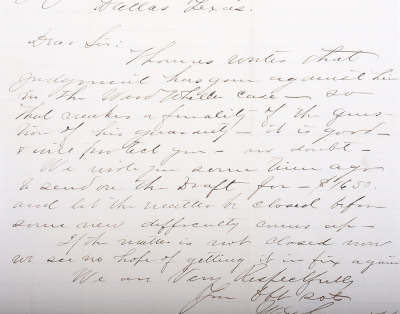 Dallas Texas.
Dear Sir:
Thomas writes that
judgment has gone against him
in the Ward White case — so
that makes a finality of the ques-
tion of his guaranty — it is good —
& will protect you — no doubt —
We wrote you some time ago
to send on the Draft for — $1650.
and let the matter be closed before
some new difficulty comes up —
If the matter is not closed now
we see no hope of getting it in fix again
We are Very Respectfully
Your Obt Svts